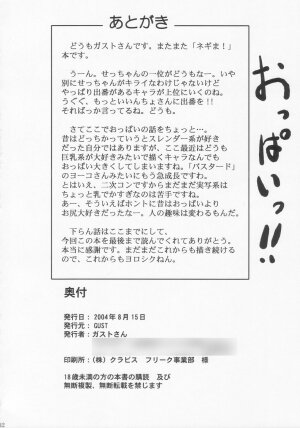 あとがき
どうもガストさんです。またまた「ネギま!」
本です。
うーん。せっちゃんの一位がどうもなー。いや
別にせっちゃんがキライなわけじゃないけど
やっぱり出番があるキャラが上位にいくのね。
うぐぐ、もっといいんちょさんに出番を!!
そればっか言ってるね。どうも。
さてここでおっぱいの話をちょっと…。
昔はどっちかっていうとスレンダー系が好き
だった自分ではありますが、ここ最近はどうも
巨乳系が大好きみたいで描くキャラなんでも
おっぱい大きくしてしまいますね。「バスタード」
のヨーコさんみたいにもう急成長ですね。
とはいえ、二次コンですからまだまだ実写系は
ちょっと乳でかすぎなのは苦手ですね。
あー、そういえばホントに昔はおっぱいより
お尻大好きだったなー。人の趣味は変わるもんだ。
下らん話はここまでにして、
今回この本を最後まで読んでくれてありがとう。
本当に感謝です。まだまだこれからも描き続ける
ので、これからもヨロシクねん。
おっぱいっ!!
奥付
発行日：2004年8月15日
発行元：GUST
発行者：ガストさん
印刷所：(株)クラビス フリーク事業部 様
18歳未満の方の本書の購読 及び
無断複製、無断転載を禁じます